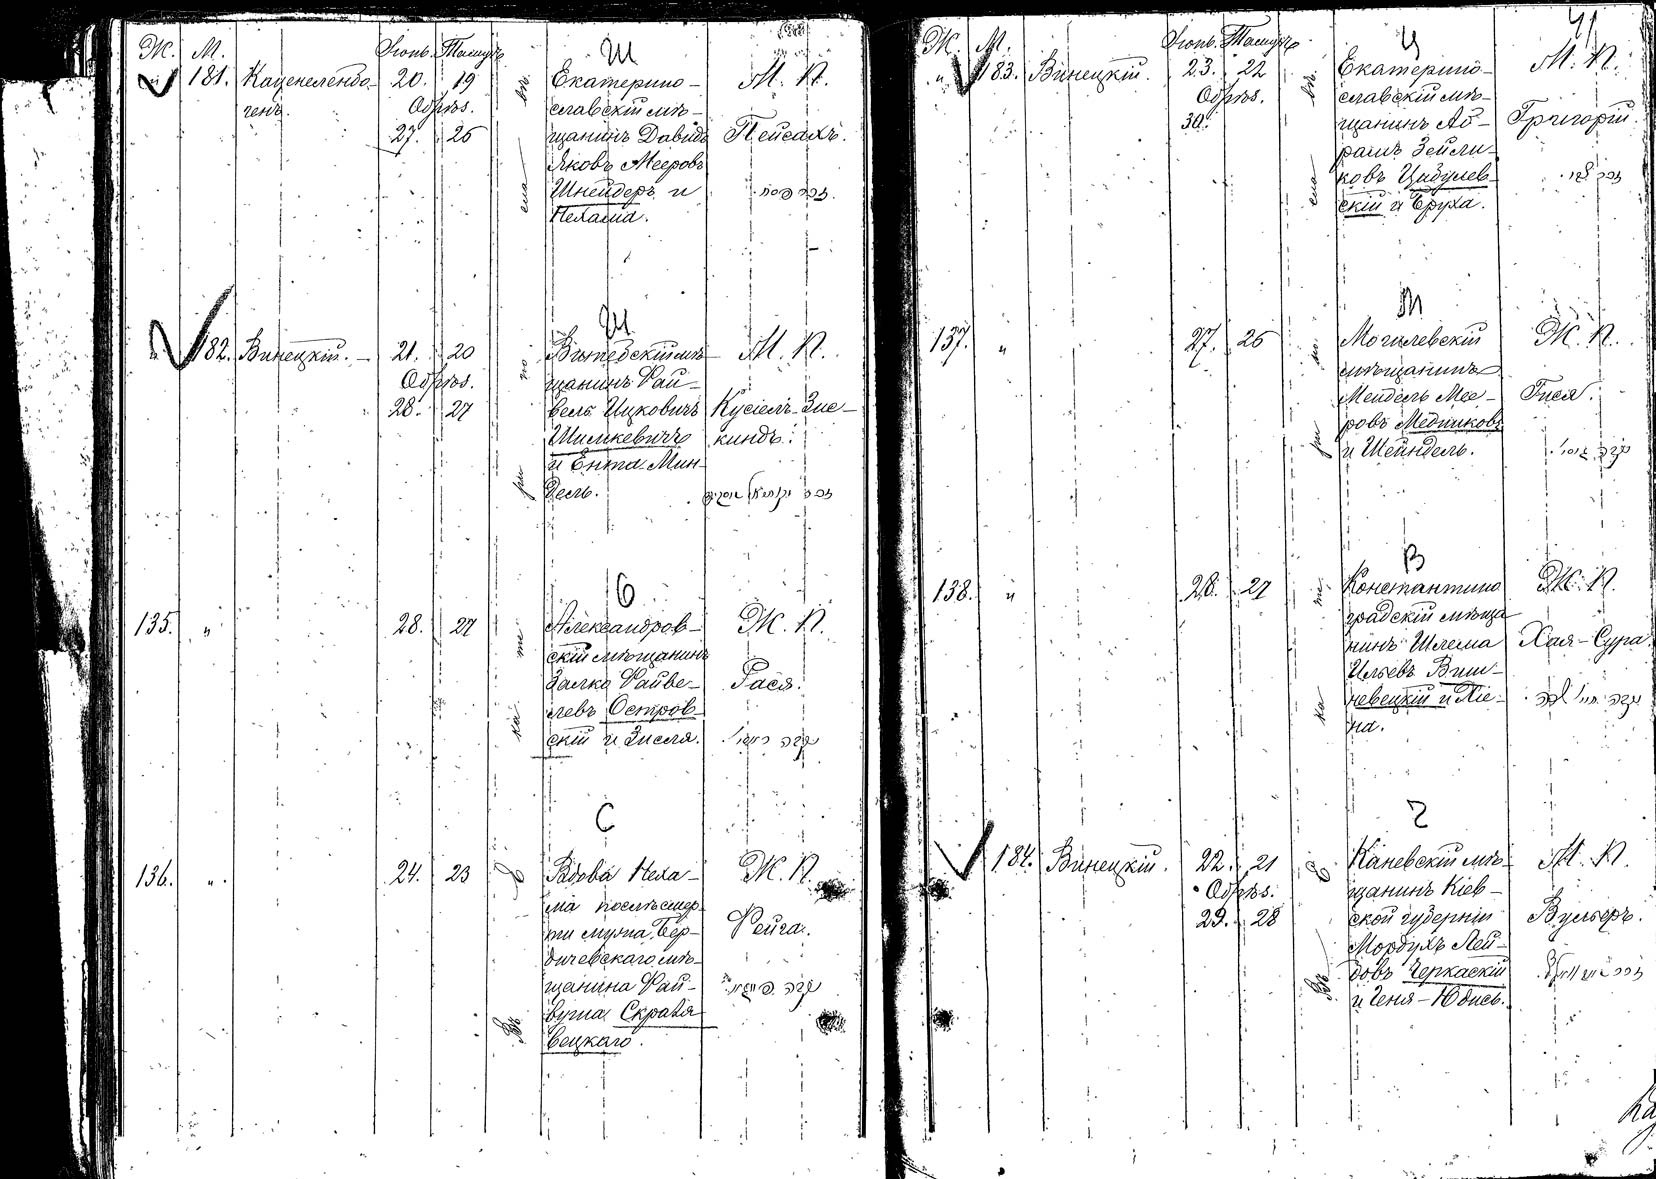 Ж. М. Іюнь. Тамузъ
Ш
181. Каценеленбо-
генъ.
20. 19
Обрѣз.
27. 26
въ
сла
Екатерино-
славскій мѣ-
щанинъ Давидъ
Яковъ Мееровъ
Шнейдеръ и
Нехама.
М. П.
Пейсахъ.
זכר פסח
Ш
182. Винецкій.
21. 20
Обрѣз.
28. 27
но
ри
Витебскій мѣ-
щанинъ Фай-
велъ Ицковичъ
Шимкевичъ
и Ента Мин-
дель.
М. П.
Кусіелъ-Зис-
киндъ.
О
135. "
28. 27
те
ка
Александров-
скій мѣщанинъ
Залко Файве-
левъ Остров-
скій и Зисля.
Ж. П.
Рася.
С
136. "
24. 23
Е
Въ
Вдова Неха-
ма послѣ смер-
ти мужа Бер-
дичевскаго мѣ-
щанина Фай-
вуша Скравя-
вецкаго.
Ж. П.
Фейга.
41
Ж. М. Іюнь. Тамузъ
Ц
" 183. Винецкій.
23. 22
Обрѣз.
30.
въ
сла
Екатерино-
славскій мѣ-
щанинъ Аб-
рамъ Зейли-
ковъ Цибулев-
скій и Бруха.
М. П.
Григорій.
М
137. "
27. 26
но
ри
Могилевскій
мѣщанинъ
Мендель Мее-
ровъ Медниковъ
и Шейндель.
Ж. П.
Гися.
В
138. "
28. 27
те
ка
Константино
градскій мѣща
нинъ Шлема
Ильевъ Виш-
невецкій и Хіе-
на.
Ж. П.
Хая-Сура.
Ч
184. Винецкій.
22. 21
Обрѣз.
29. 28
Е
Въ
Каневскій мѣ-
щанинъ Кіев-
ской губерніи
Мордухъ Лей-
бовъ Черкаскій
и Геня-Юдись.
М. П.
Вульфъ.